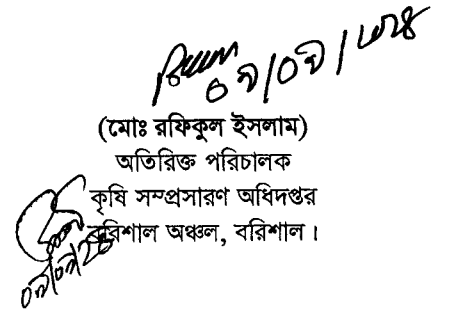 (মোঃ রফিকুল ইসলাম)
অতিরিক্ত পরিচালক
কৃষি সম্প্রসারণ অধিদপ্তর
বরিশাল অঞ্চল, বরিশাল।